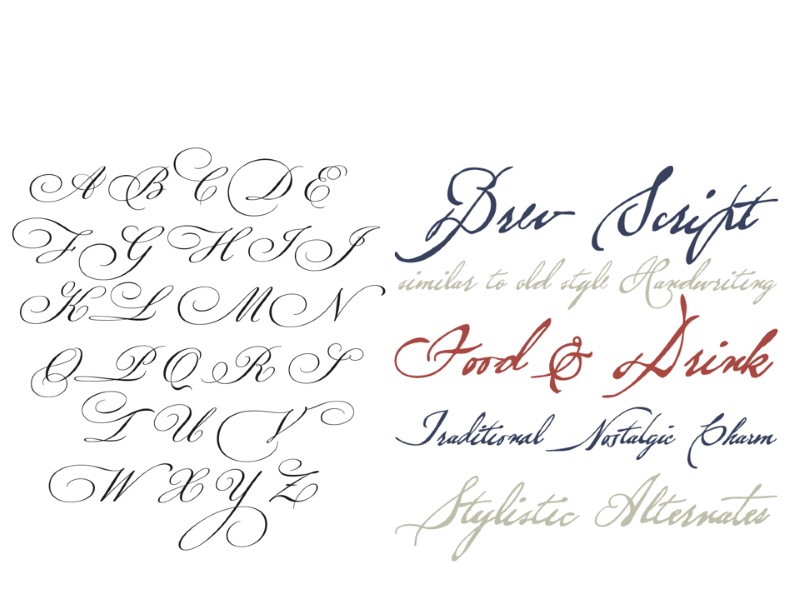 A B C D E
F G H I J
K L M N
O P Q R S
T U V
W X Y Z
Brev Script
similar to old style Handwriting
Food & Drink
Traditional Nostalgic Charm
Stylistic Alternates